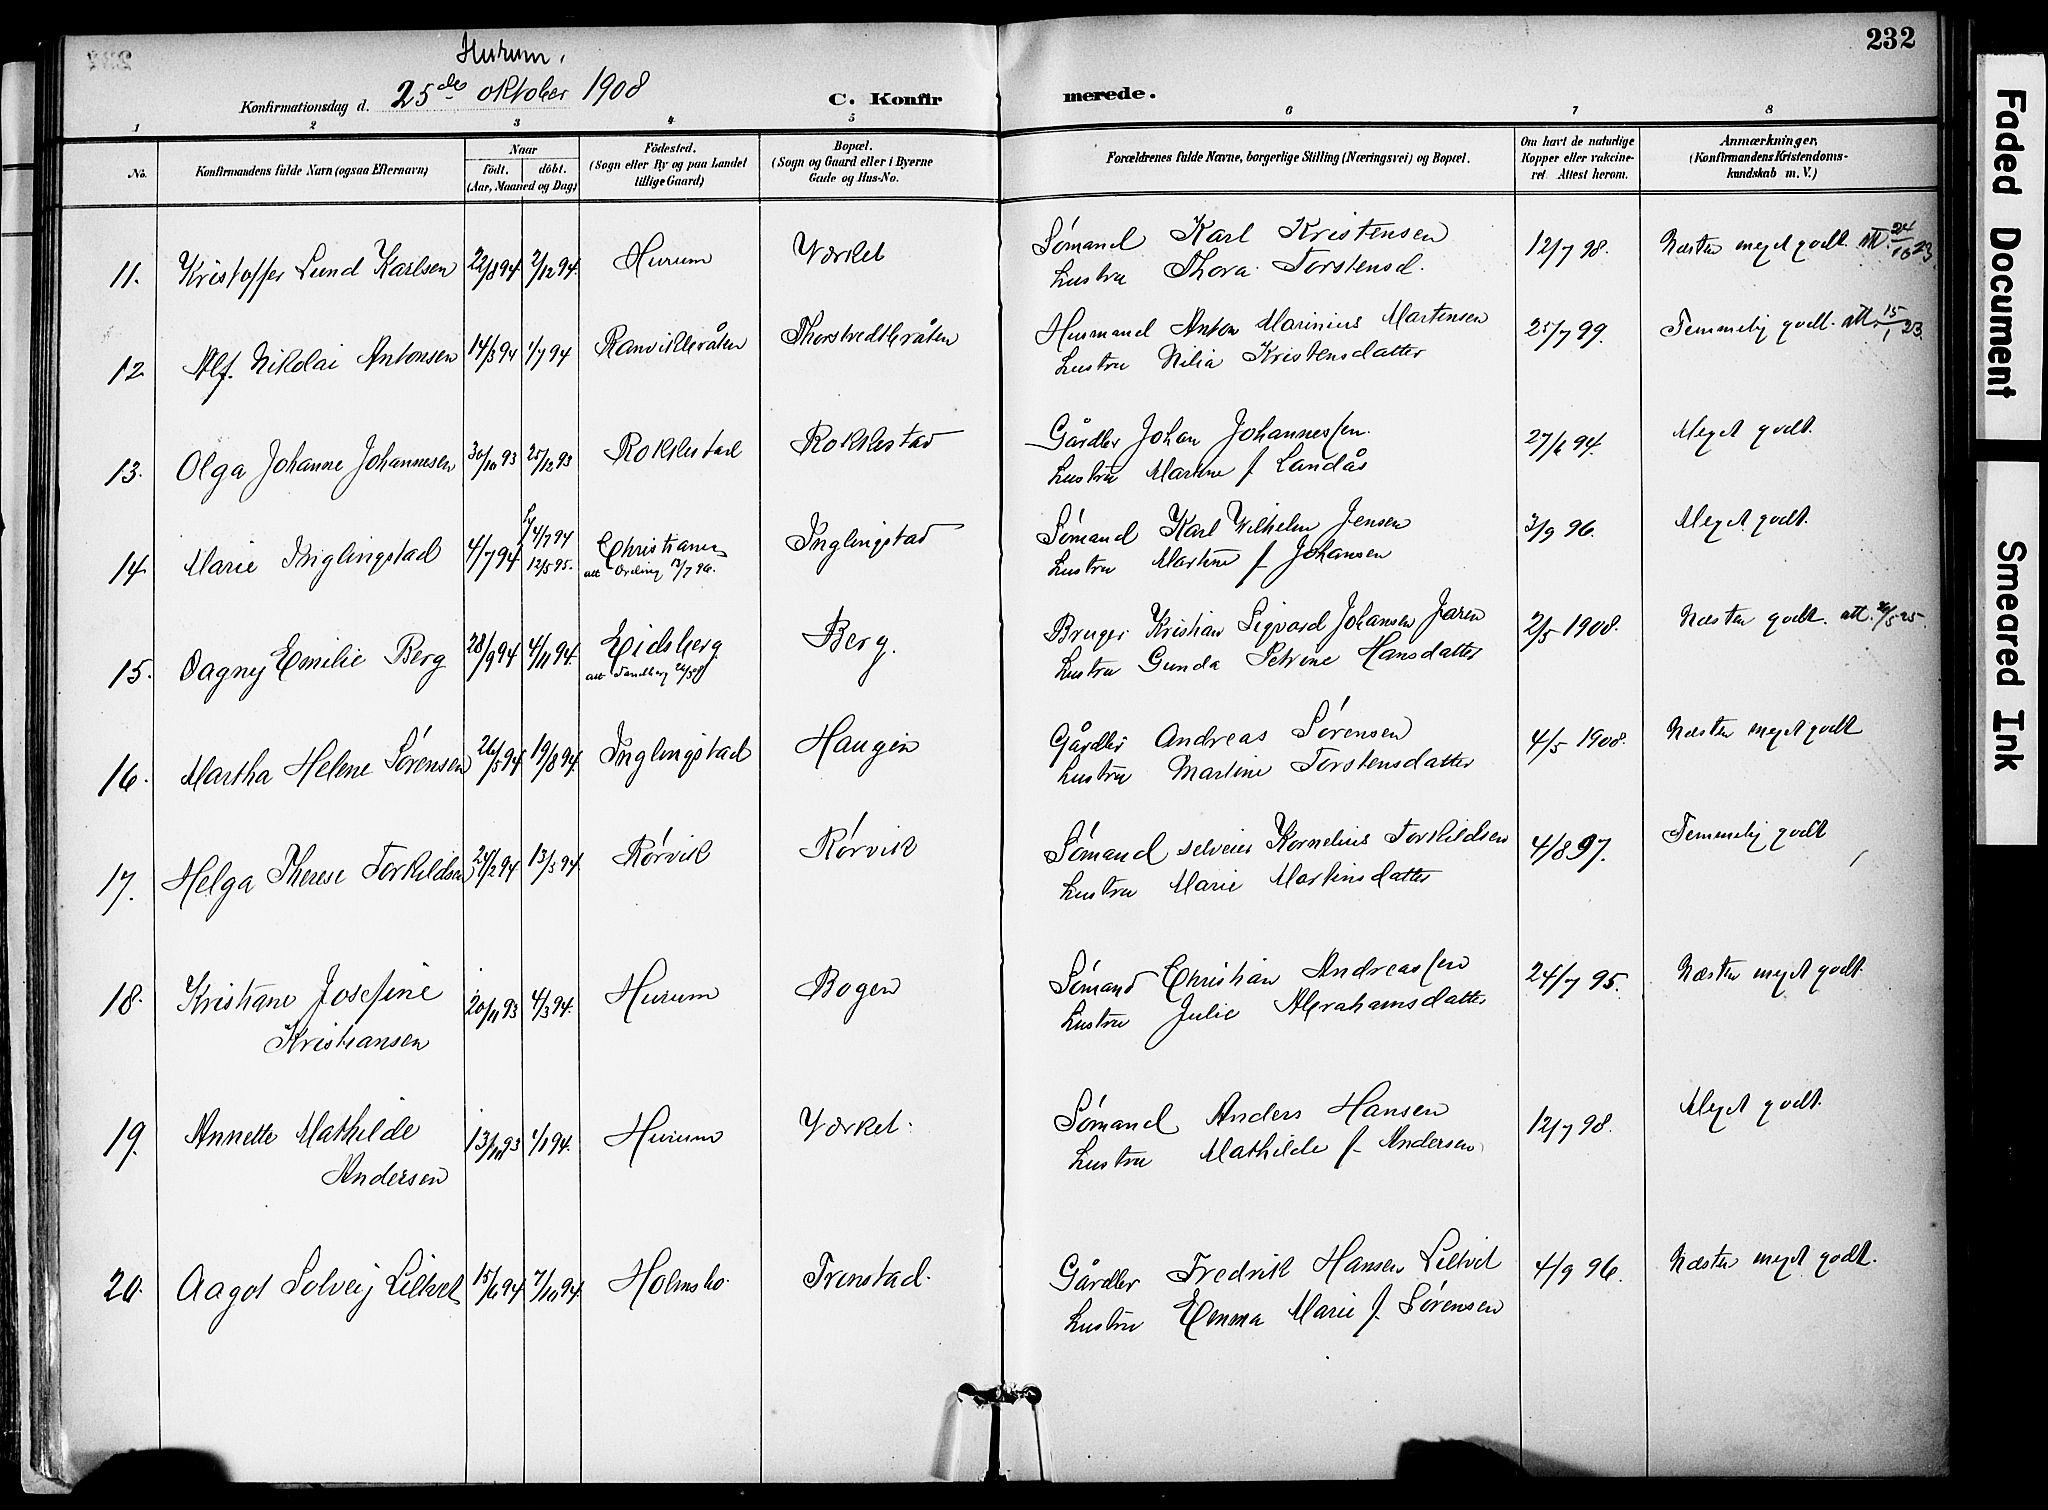 232
Hurum.
Konfirmationsdag d. 25de oktober 1908
C. Konfirmerede.
1 2 3 4 5 6 7 8
No. Konfirmandens fulde Navn (ogsaa Efternavn) Naar født, døbt. (Aar, Maaned og Dag) Fødested. (Sogn eller By og paa Landet tillige Gaard) Bopæl. (Sogn og Gaard eller i Byerne Gade og Hus-No. Forældrenes fulde Navne, borgerlige Stilling (Næringsvei) og Bopæl. Om havt de naturlige Kopper eller vakcineret. Attest herom. Anmærkninger, (Konfirmandens Kristendomskundskab m. V.)
11. Kristoffer Lund Karlsen 22/8 94 2/12 94. Hurum Værket Sømand Karl Kristensen 12/7 98. Næsten meget godt. att. 24/10 23.
Hustru Thora Torstensd.
12 Alf. Nikolai Antonsen 14/3 94 1/7 94 Ranviksbråten Thorstvedtbråten Husmand Anton Marinius Martinsen 25/7 99. Temmelig godt. att. 15/1 23.
Hustru Nilia Kristensdatter
13. Olga Johanne Johannesen 30/10 93 25/12 93 Roklestad Roklestad Gårdbr Johan Johannessen. 27/6 94. Meget godt.
Hustru Martine f. Landås
14 Marie Inglingstad 4/7 94 4/7 94 12/5 95. Christiania Inglingstad Sømand Karl Wilhelm Jensen 3/9 96. Meget godt.
Hustru Martine f Johansen
15. Dagny Emilie Berg 28/9 94 4/11 94. Eidsberg Berg. Bruger Kristian Sigvard Johansen Jaren 2/5 1908. Næsten godt. att. 26/5 25.
att Sandberg Hustru Gunda Petrine Hansdatter
16. Martha Helene Sørensen 26/5 94 19/8 94. Inglingstad Haugen Gårdbr Andreas Sørensen 4/5 1908. Næsten meget godt
Hustru Martine Torstensdatter
17. Helga Therese Torkildsen 24/2 94 13/5 94. Rørvik Rørvik Sømand selveier Kornelius Torkildsen 4/8 97. Temmelig godt
Hustru Marie Martinsdatter
18. Kristiane Josefine 20/11 93 4/3 94. Hurum Bogen Sømand Christian Andreassen 24/7 95. Næsten meget godt.
Kristiansen Hustru Julie Abrahamsdatter
19. Annette Mathilde 13/11 93 1/1 94. Hurum Værket. Sømand Anders Hansen 12/7 98. Meget godt.
Andersen Hustru Mathilde f. Andersen
20. Aagot Solveig Liltvet 15/6 94 7/10 94 Holmsbo. Tronstad. Gårdbr Fredrik Hansen Liltvet 4/9 96. Næsten meget godt.
Hustru Emma Marie f. Sørensen
Faded Document
Smeared Ink